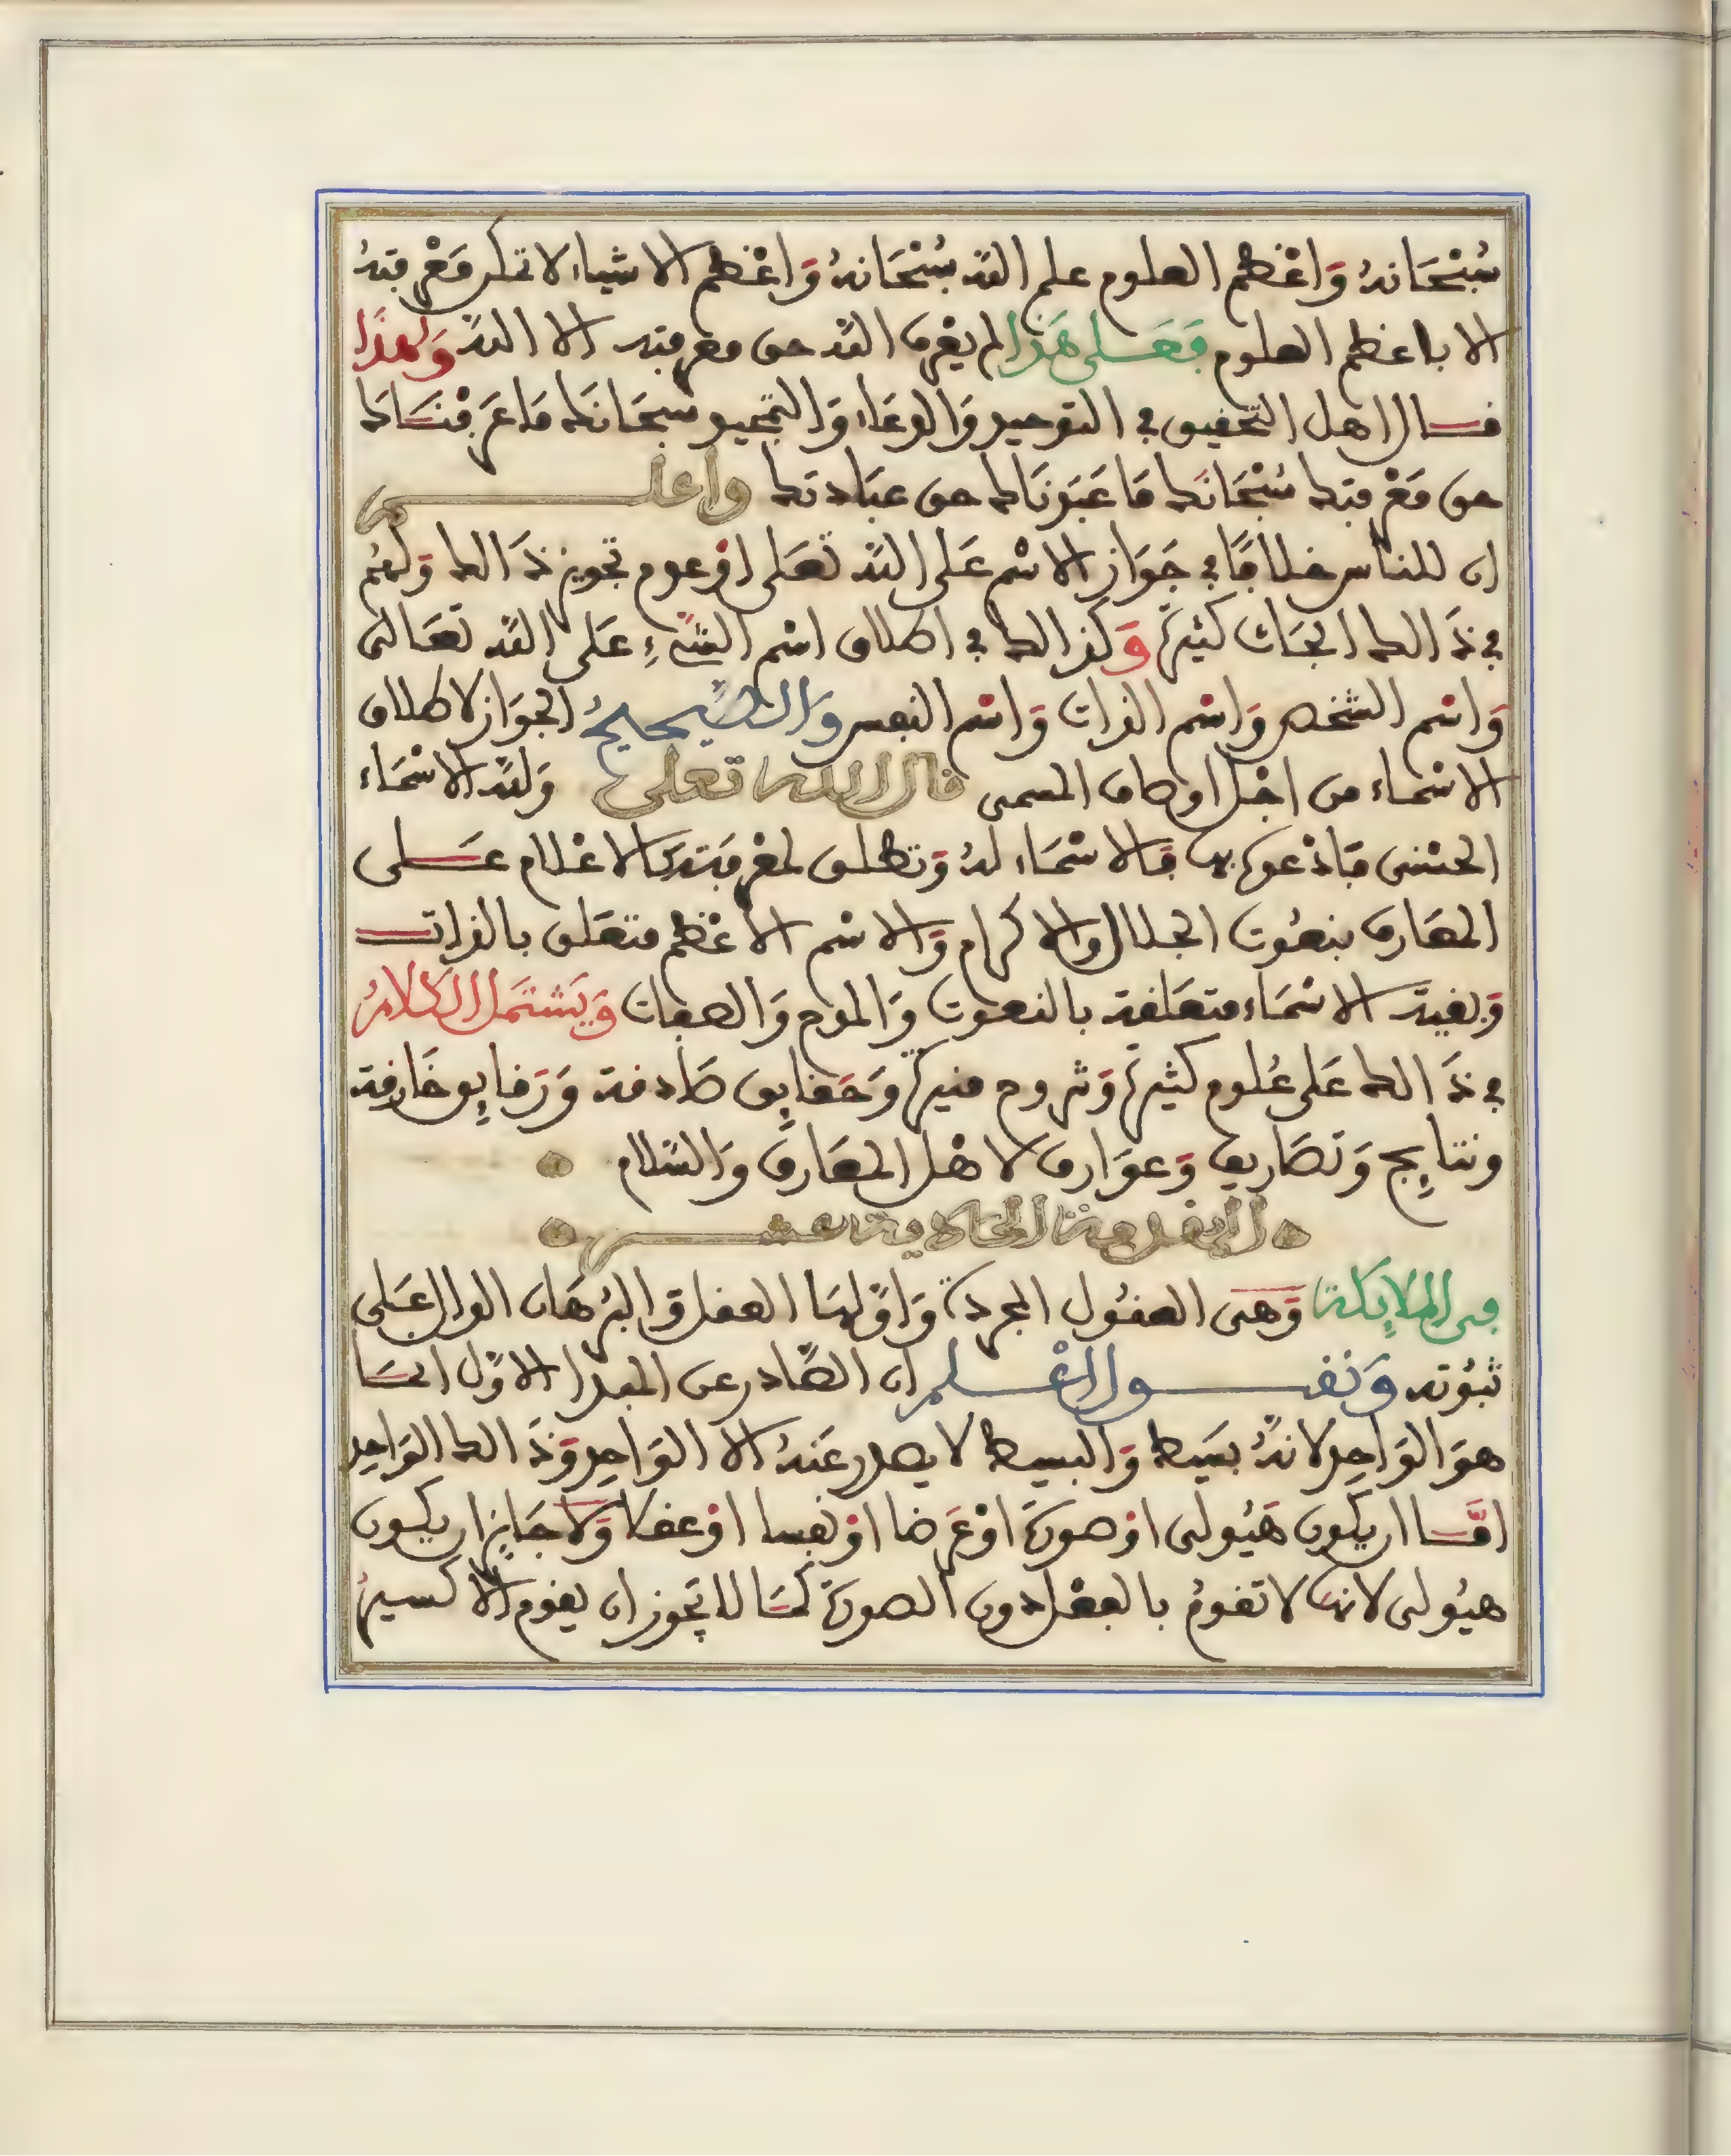 سُبْحَانهُ وَاعْظم العلوم علم اللّه سُبْحَانهُ وَاعْظم الاشياء لا تمكن مَعْرفتهُ
الا باعظم العلوم فَعَلى هَذا لم يعْرف اللّه حق معرفته الا اللّه وَلهذَا
قال اهل التحقيق في التوحيد وَالدعَاء وَالتمجيد سبحَانك مَا عَرفْنَاك
حق مَعْرفتك سُبْحَانَك مَا عَبَدْنَاك حق عبَادتك واعلم
ان للناس خلافًا في جَوَاز الاسْم عَلى اللّه تعَلى اوْ عدم تجويز ذَالك وَلهُم
في ذَالك ابحَاث كثيرة وَكذالك في اطلاق اسْم الشّيْءِ عَلى اللّه تعَالى
وَاسْم الشخص وَاسْم الذات وَاسْم النفس وَالصَّحيحُ الجوَاز لاطلاق
الاسْمَاء من اجْل اوصاف المسمى قال الله تعلى وَللّه الاسْمَاء
الحسْنى فَادْعوه بها فَالاسْمَاء لهُ وَتطلق لمعْرفَته كالاعْلام عَلى
المعَارف بنعُوت الجلال والاكرام وَالاسْم الاعْظم متعَلق بالذات
وَبقيّة الاسْمَاء متعَلقة بالنعوت وَالمدح وَالصفات وَيَشتمل الكلامُ
في ذَالك عَلى عُلوم كثيرة وَشروح منيرة وَحَقايِق صَادقة وَرَقايِق خَارقة
ونتايِج وَتصَاريف وَعوَارف لاهْل المعَارف وَالسّلام
المقدمة الحادية عشر
في الملايِكة وَهى العقُول المجردة وَاوّلهَا العقل وَالبُرهَان الدال عَلى
ثبُوته وَنقول اعْلم ان الصَّادر عن المبدا الاوّل انمَا
هوَ الوَاحِد لانهُ بسَيط وَالبسيط لا يصدر عَنهُ الا الوَاحِد وَذَالك الوَاحِد
امَّا ان يكون هَيُولى اوْ صورة اوْ عَرضا اوْ نفسا اوْ عقلا وَلا جَايِز ان يكون
هيُولى لانها لا تقومُ بالفعْل دون الصورة كمَا لا يجوز ان يقوم الاكسيرُ